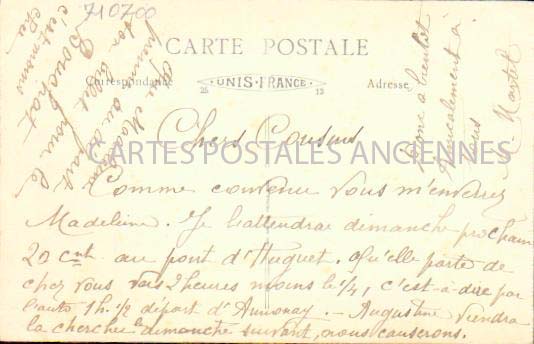 710700
CARTE POSTALE
Correspondance
UNIS-FRANCE
25
13
Adresse
CARTES POSTALES ANCIENNES
Chers Cousins
Comme convenu vous m'enverrez
Madeleine. Je l'attendrai dimanche prochain
20 cnt au pont d'Huguet. Qu'elle parte de
chez vous vers 2 heures moins le 1/4, c'est-à-dire par
l'auto 1h. 1/2 départ d'Annonay. — Augustine viendra
la chercher le dimanche suivant, nous causerons.
Bonne à bientôt
Amicalement à
Vous
Martel
Que Madeleine
prenne
son billet au départ
Bouchat pour le
c'est moins
cher